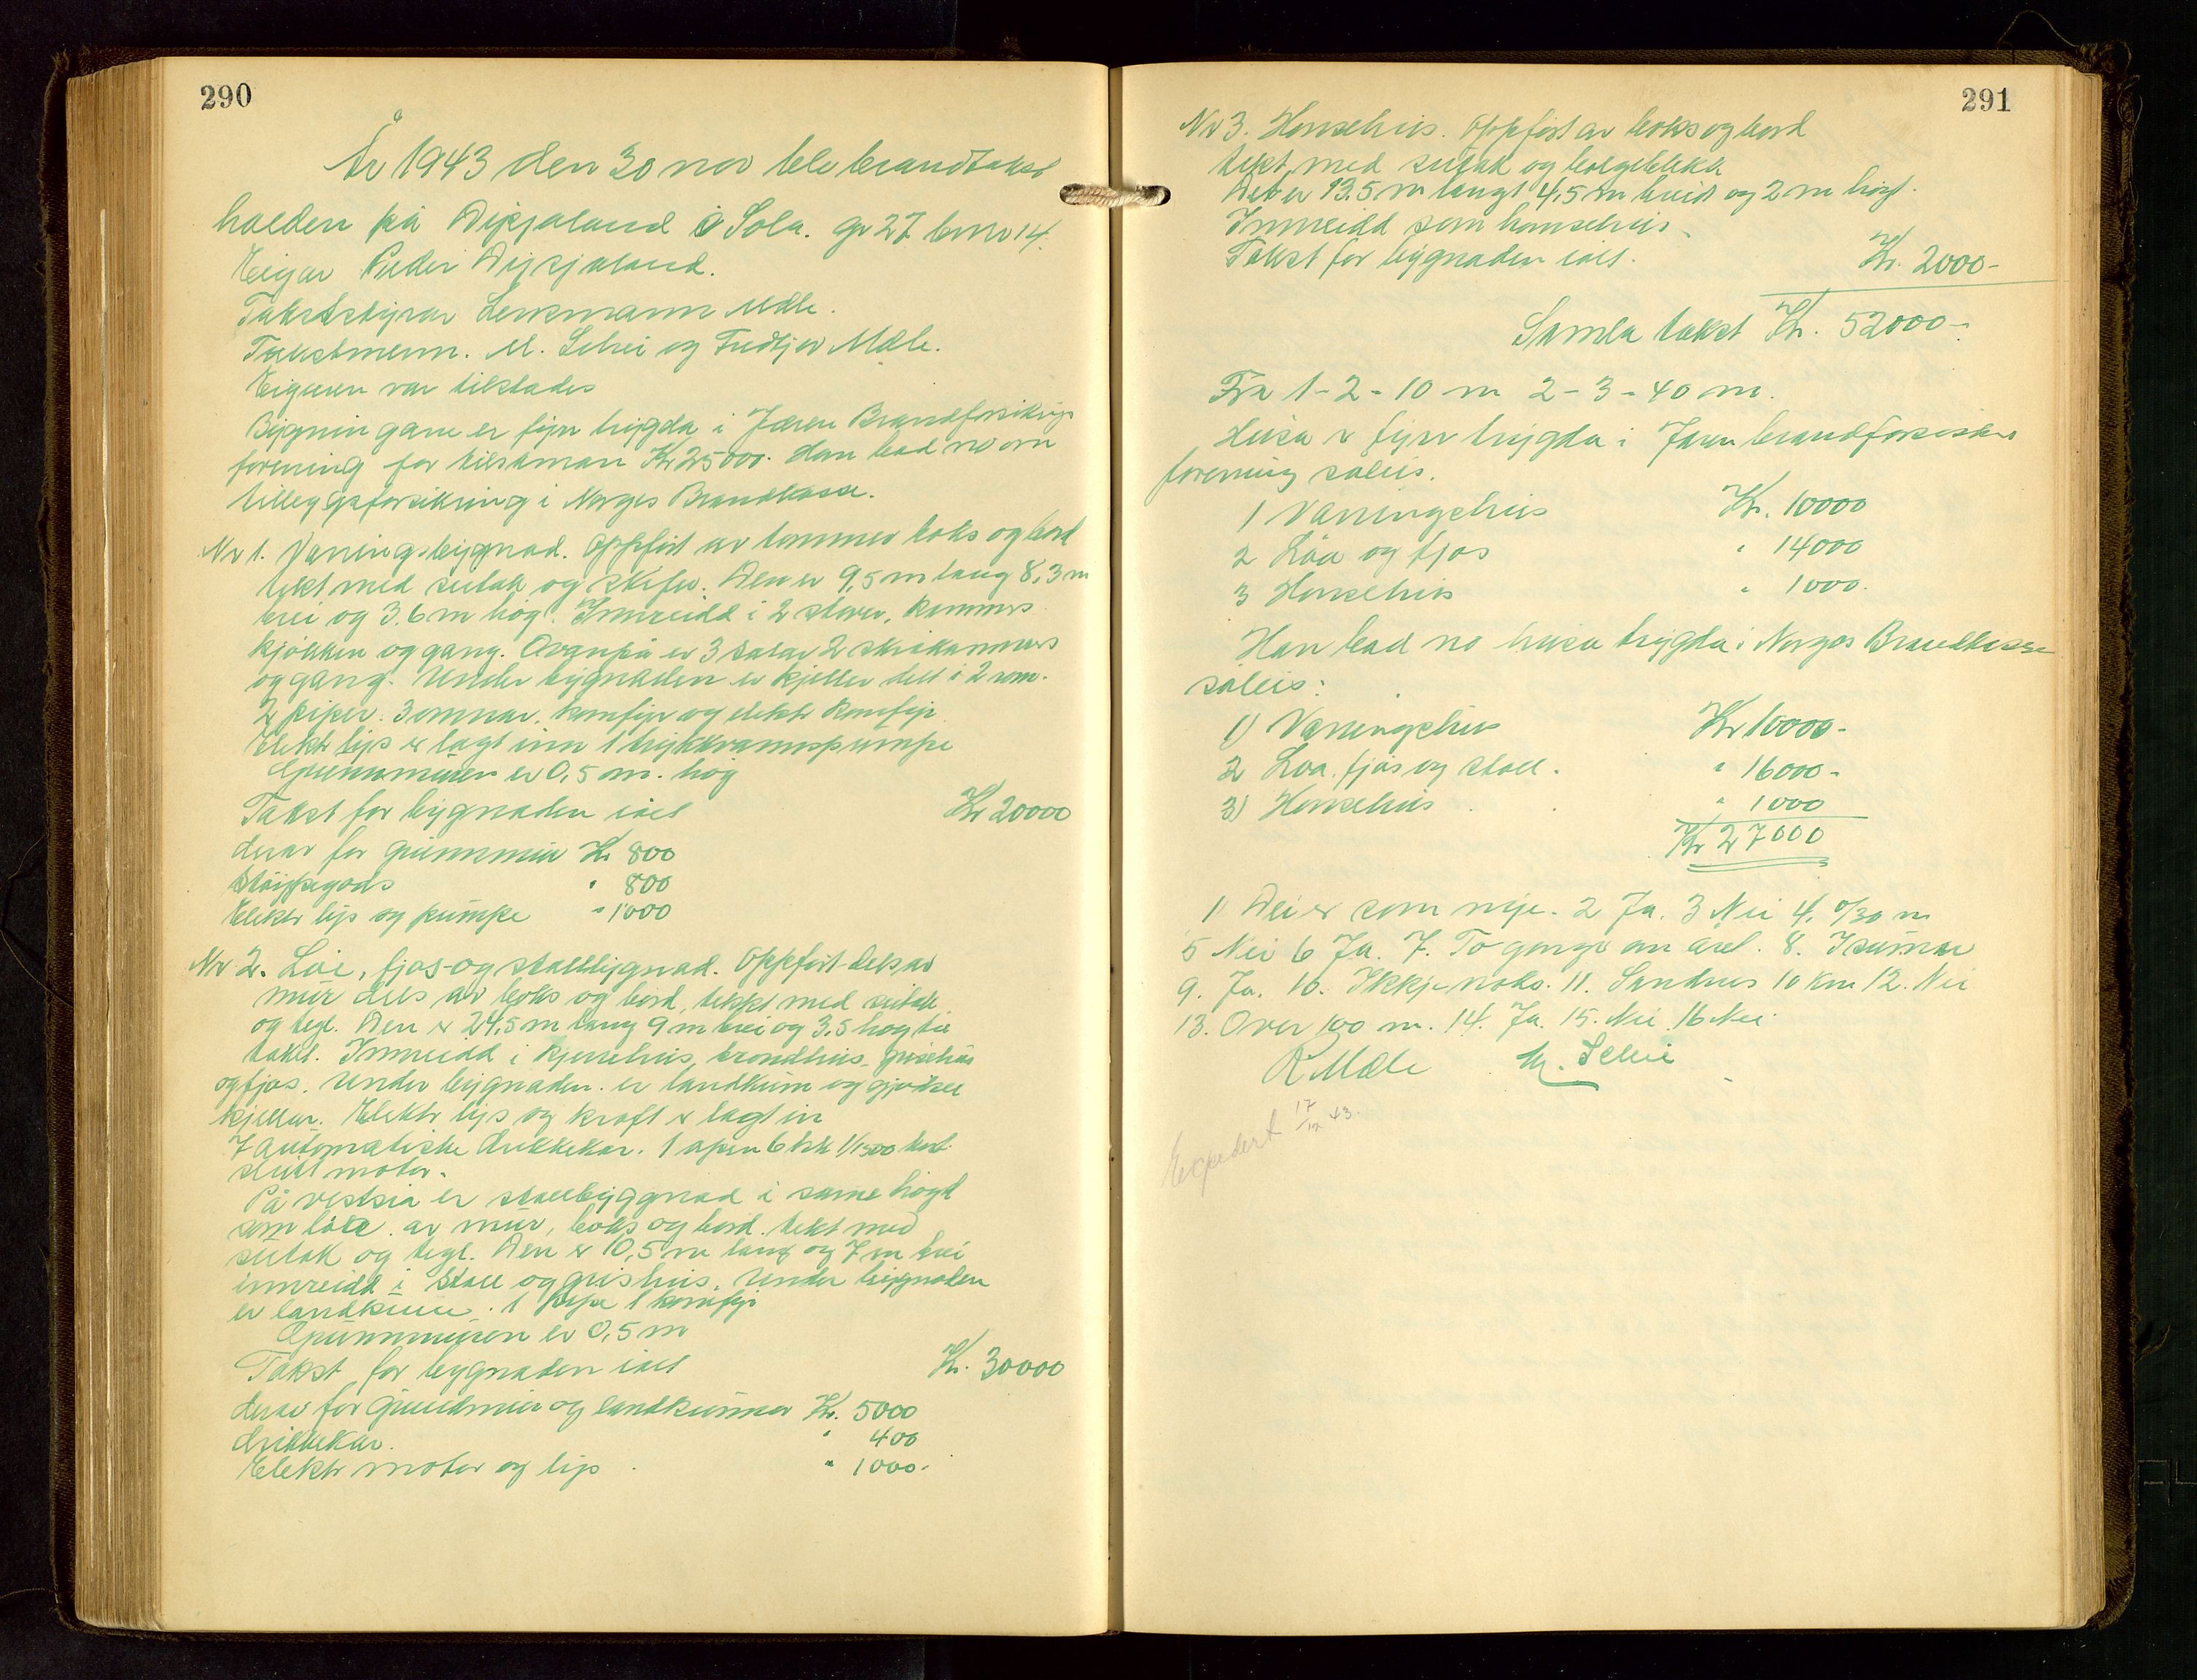 290
År 1943 den 30 nov ble brandtakst
halden på Dysjaland i Sola. gr 27 brno 14.
Eigar Peder Dysjaland.
Takststyrar Lensmann Mæle.
Takstmenn. M. Selvi og Fridtjov Mæle.
Eigaren var tilstades
Bygningane er fyrr trygda i Jæren Brandforsikrings
forening for tilsaman Kr 25000. Han bad no om
tilleggsforsikring i Norges Brandkasse.
Nr 1. Vaningsbygnad. Oppført av tømmer boks og bord
tekt med sutak og skifer. Den er 9,5 m lang 8,3 m
brei og 3,6 m høg. Innreidd i 2 stover, kammers
kjøkken og gang. Ovanpå er 3 salar 2 skråkammers
og gang. Under bygnaden er kjeller delt i 2 rom.
2 piper. 3 omnar. komfyr og elektr komfyr
Elektr lys er lagt inn 1 trykkvannspumpe
Grunnmuren er 0,5 m. høg
Takst for bygnaden ialt Kr 20000
derav for grunnmur Kr 800
Støypegods " 800
Elektr lys og pumpe " 1000
Nr 2. Løe, fjos- og stallbygnad. Oppført dels av
mur dels av boks og bord, tekt med sutak
og tegl. Den er 24,5 m lang 9 m brei og 3,5 høg til
taket. Innreidd i kjørehus, brøndhus, grisehus
og fjos. Under bygnaden er landkum og gjødsel
kjellar. Elektr lys og kraft er lagt in
7 automatiske drikkekar. 1 open 6 hk 1/1500 kort
slutt motor.
På vestsia er stallbyggnad i same høgd
som løa av mur, boks og bord. tekt med
sutak og tegl. Den er 10,5 m lang og 7 m brei
innreidd i stall og grishus. Under bygnaden
er landkum. 1 pipe 1 komfyr
Grunnmuren er 0,5 m
Takst for bygnaden ialt Kr. 30000
derav for grundmur og landkummer Kr. 5000
drikkekar. " 400
Elektr motor og lys " 1000.
291
Nr 3. Hønsehus. Oppført av boks og bord
tekt med sutak og bølgeblekk
Det er 13.5 m langt 4,5 m breidt og 2 m høgt.
Innreidd som hønsehus.
Takst for bygnaden ialt. Kr. 2000-
Samla takst Kr. 52000-
Frå 1-2-10 m 2-3-40 m.
Husa er fyrr trygda i Jæren brandforsikrings
forening såleis.
1 Vaningshus Kr. 10000
2 Løa og fjos " 14000
3 Hønsehus " 1000.
Han bad no husa trygda i Norges Brandkasse
såleis:
1) Vaningshus Kr 10000-
2 Løa, fjos og stall. " 16000-
3) Hønsehus " 1000
Kr 27000
1) Dei er som nye. 2 Ja. 3 Nei 4. 0/30 m
5 Nei 6 Ja. 7. To gongr om året. 8. I sumar
9. Ja. 10. Ikkje noko. 11. Sandnes 10 km 12. Nei
13. Over 100 m. 14. Ja. 15. Nei. 16 Nei.
R Mæle M. Selvi
Expedert 17/12 43.